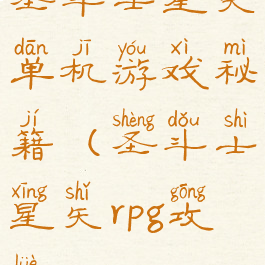 圣斗士星矢
dān jī yóu xì mì
单机游戏秘
jí shèng dǒu shì
籍（圣斗士
xīng shǐ gōng
星矢rpg攻
lüè